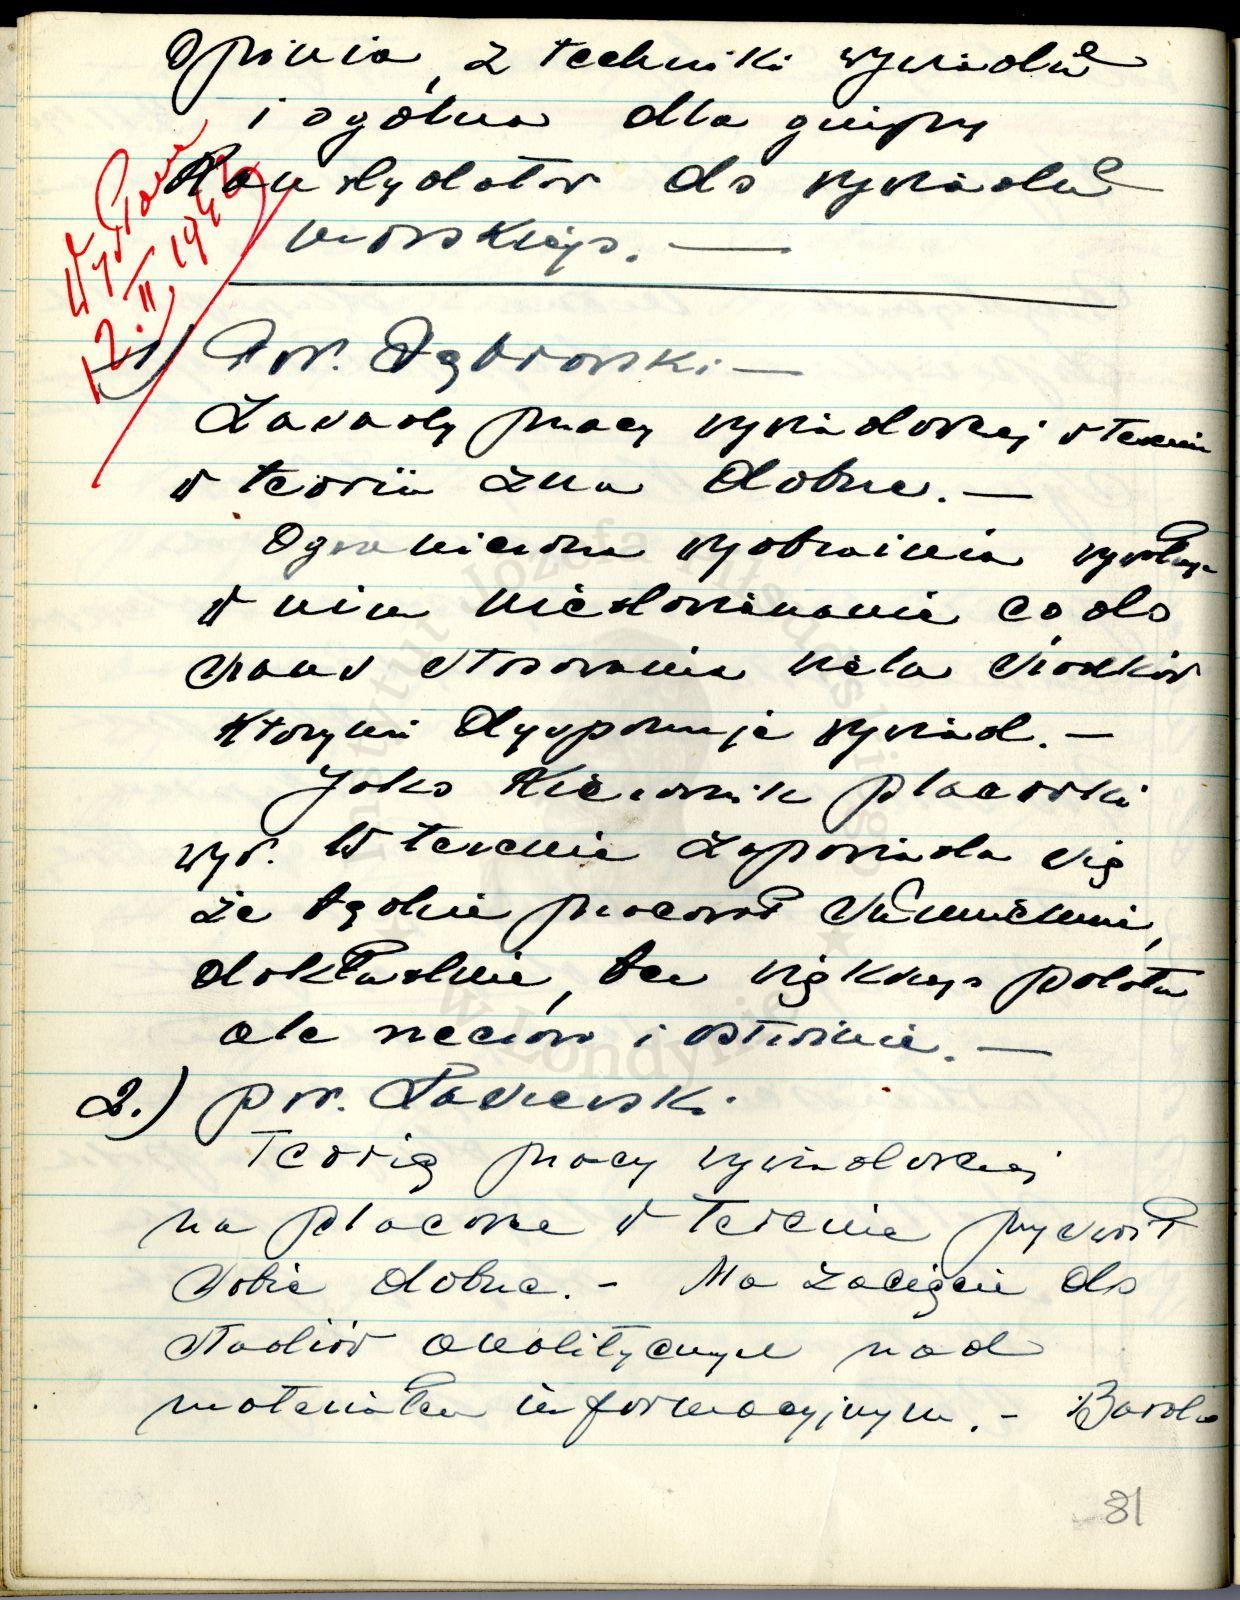 Opinia z techniki wywiadu
i ogólna dla grupy
Kandydatów do wywiadu
morskiego. —
Wysłane
12.II.1942
1) Por. Dąbrowski —
Zasady pracy wywiadowczej w terenie
w teorii zna dobrze. —
Ograniczona wyobraźnia wywołuje
w nim niedomaganie co do
stosowania wielu środków
którymi dysponuje wywiad. —
Jako kierownik placówki
wyw. w terenie zapowiada się
że będzie pracował sumiennie,
dokładnie, bez większego polotu
ale rzeczowo i ostrożnie. —
2.) por.
Teorię pracy wywiadowczej
na placówce w terenie przyswoił
sobie dobrze. – Ma zacięcie do
studiów analitycznych nad
materiałem informacyjnym. – Bardzo
81
Instytut Józefa Piłsudskiego
w Londynie